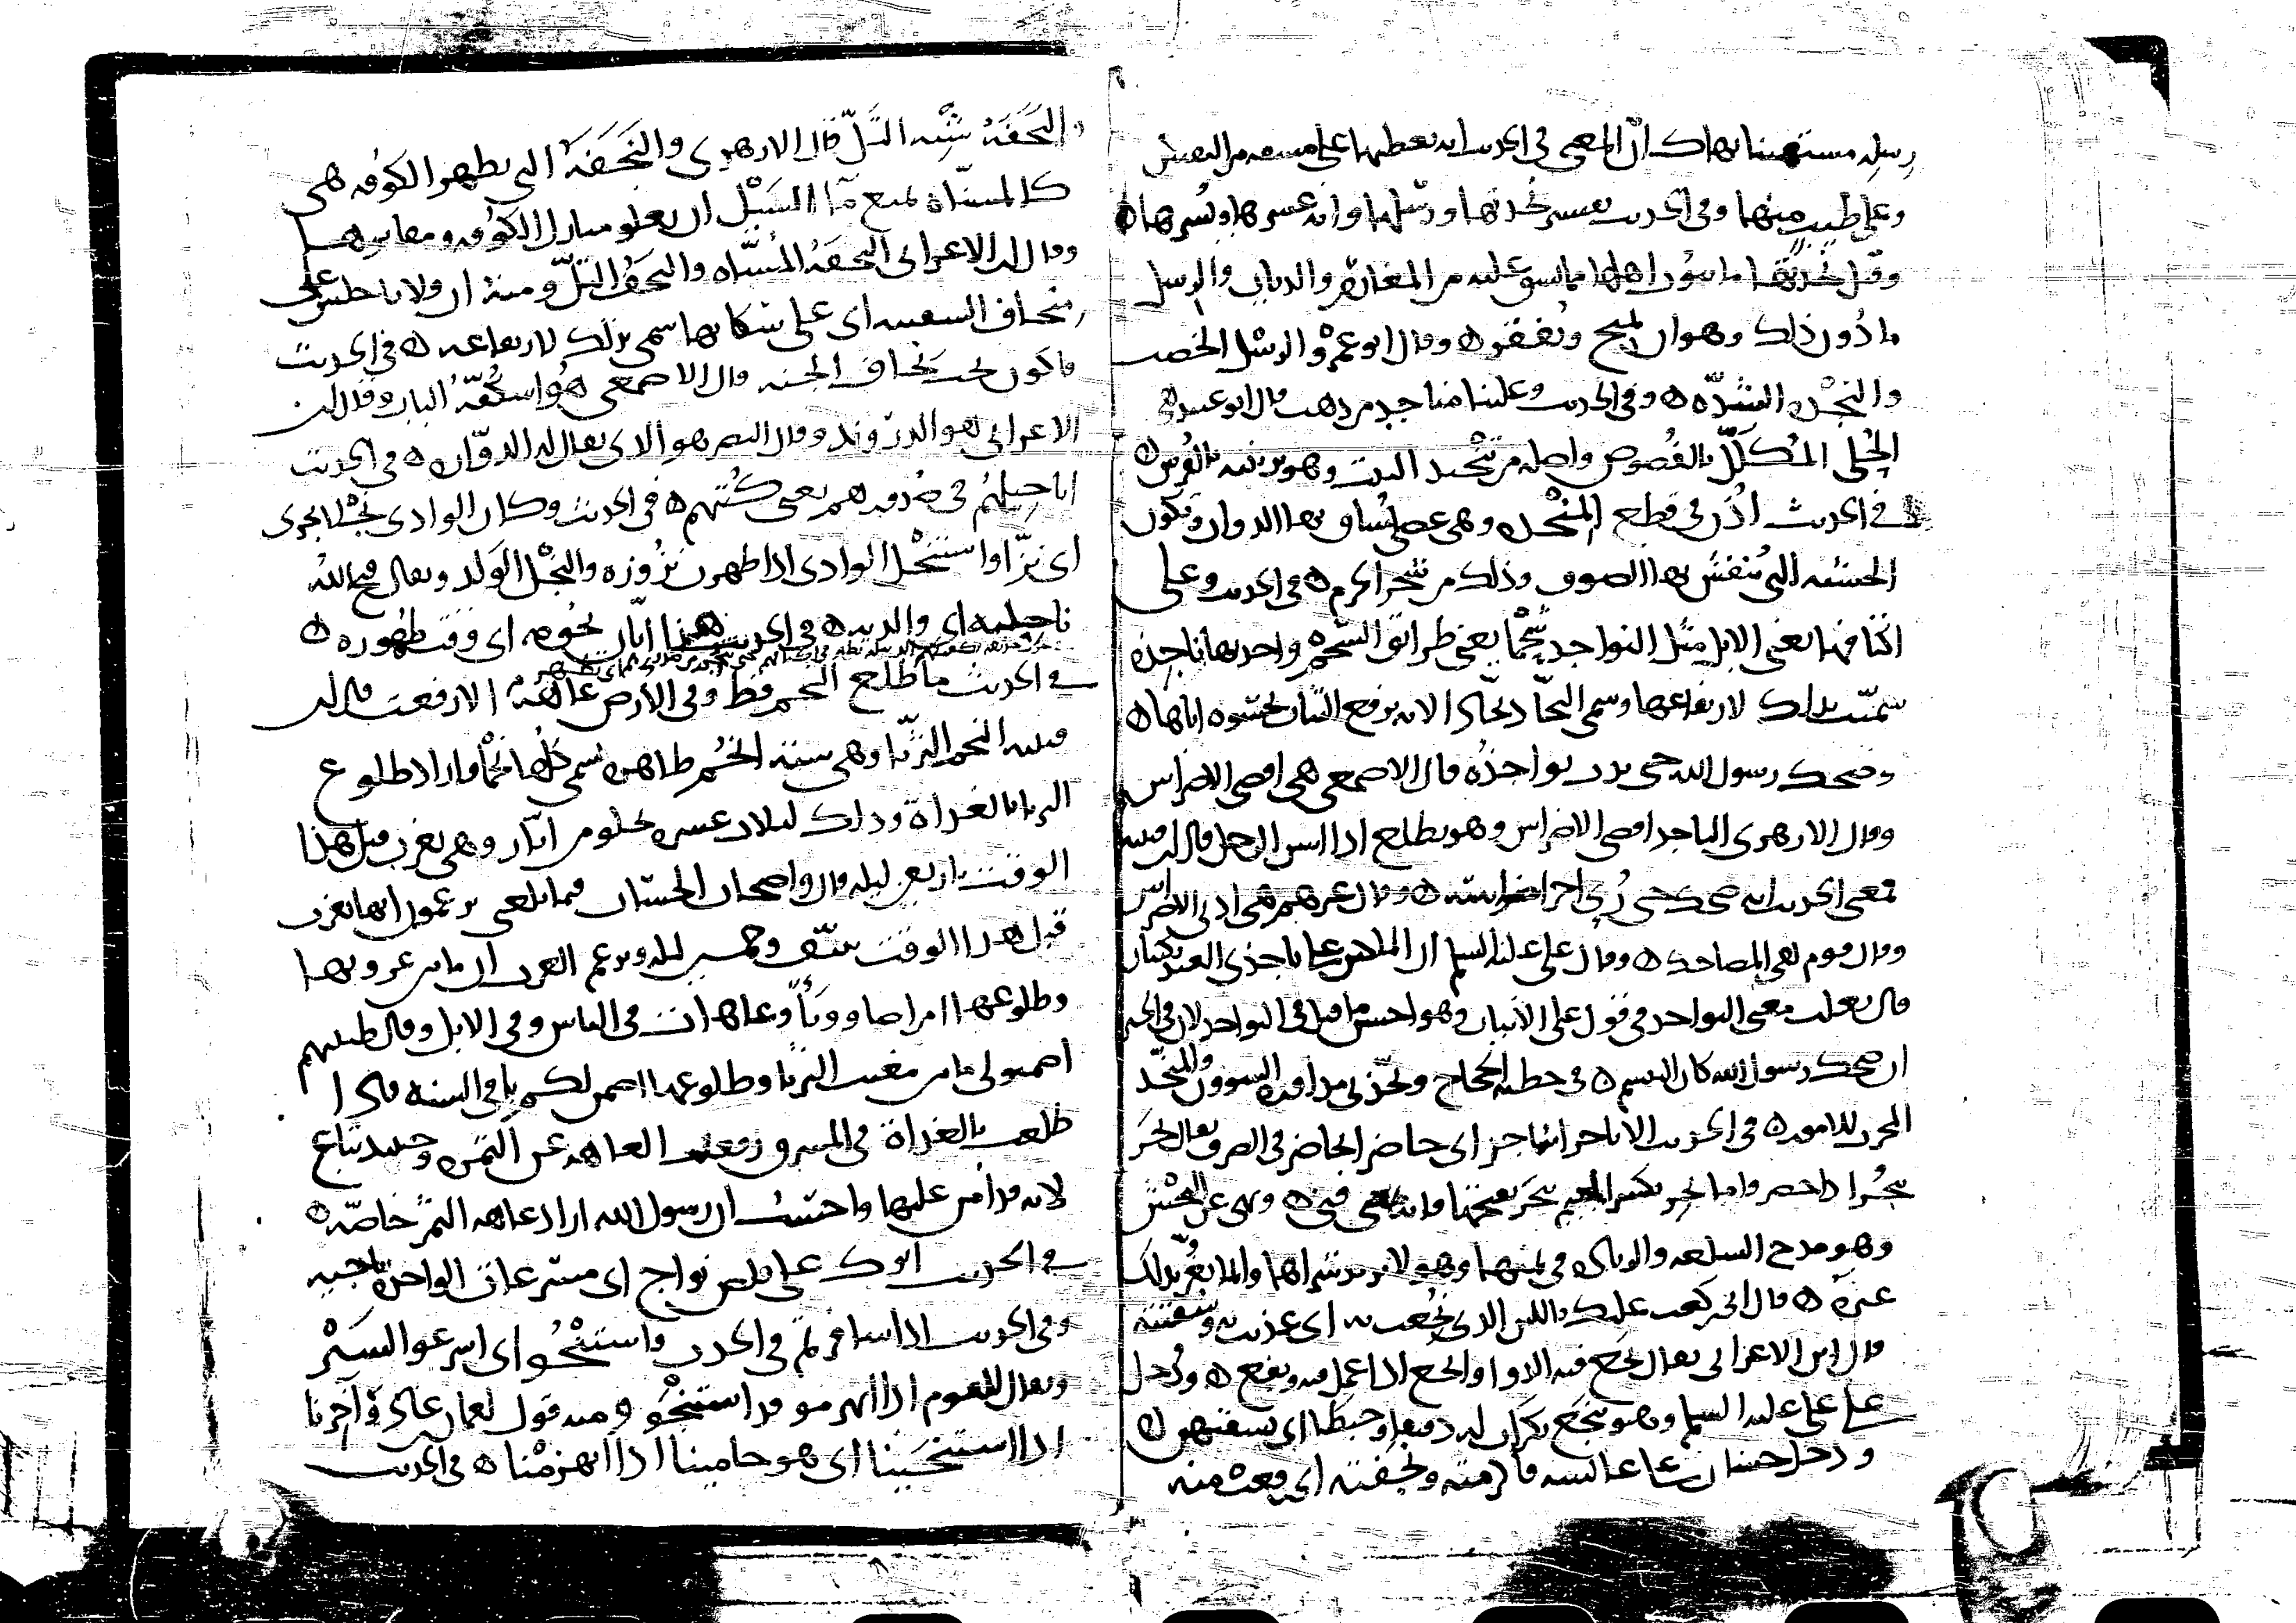 رسله مستهينا بها كأن المعنى في الحديث انه يعطيها على مشقه من النفس
وعلى طيب منها وفي الحديث تفسير نجدتها ورسلها وانه عسرها ويسرها ه
وقيل نجدتها ما ينوب اهلها مما يشق عليه من المغارم والديات والرسل
ما دون ذلك وهو ان يمنح ويفقر ه وقال ابو عمرو الرسل الخصب
والنجده الشدّه ه وفي الحديث وعليها مناجد من ذهب قال ابو عبيد هي
الحلي المكلّل بالفصوص واصله من تنجيد البيت وهو تزيينه بالفرش ه
في الحديث اذن في قطع المنجده وهي عصا تساق بها الدواب وتكون
الخشبه التي ينفش بها الصوف وذلك من شجر الحرم ه في الحديث وعلى
اكتافها يعني الابل مثل النواجد شحما يعني طرائق الشحم واحدتها ناجده
سمّيت بذلك لارتفاعها وسمي النجّاد نجّادا لانه يرفع الثياب بحشوه اياها ه
وضحك رسول الله حتى بدت نواجذه قال الاصمعي هي اقصى الاضراس
وقال الازهري الناجذ اقصى الاضراس وهو يطلع اذا اسن الرجل قال ابن قتيبه
فمعنى الحديث انه ضحك حتى رئي اخر اضراسه ه وقال غيرهم هي ادنى الاضراس
وقال قوم هي المضاحك ه وقال علي عليه السلم ان الملكين على ناجذي العبد يكتبان
قال ثعلب معنى النواجذ في قول علي الانياب وهو احسن ما قيل في النواجذ لان في الخبر
ان ضحك رسول الله كان التبسم ه في خطبه الحجاج ونجّذني مداوره السوون والمنجّذ
المجرب للامور ه في الحديث الا ناجزا بناجز اي حاضر الحاضر في الصرف يقال نجز
ينجز اذا حضر واما نجز بكسر الجيم ينجز بفتحها فانه بمعنى فني ه ونهى عن النجش
وهو مدح السلعه والزياده في ثمنها وهو لا يريد شراها وانما يغرّ بذلك
غيره ه قال ابي كعب عليك واللبن الذي نجعت به اي غذيت به وسقيته
قال ابن الاعرابي يقال نجع فيه الدوا وانجع اذا عمل فيه ونفع ه ودخل
على علي عليه السلم وهو ينجع بكرات له دقيقا وخبطا اي يسقيهن ه
ودخل حسان على عائشه فاكرمته ونجفته اي رفعت منه
النجفه شبه التلّ قال الازهري والنجفة التي بظهر الكوفه هي
كالمسنّاة تمنع ما السيل ان يعلو منازل الكوفه ومقابرها
وقال ابن الاعرابي النجفة المسنّاه والنجف التلّ ومنه ان فلانا جلس على
منجاف السفينه اي على سكانها سمي بذلك لارتفاعه ه في الحديث
فاكون تحت نجاف الجنه قال الاصمعي هو اسكفّة الباب وقال ابن
الاعرابي هو الدروند وقال النضر هو الذي يقال له الدوّاره ه في الحديث
اناجيلهم في صدورهم يعني كتبهم ه في الحديث وكان الوادي نجلا يجري
اي نزّا واستنجل الوادي اذا ظهرت نزوزه والنجل الولد ويقال قبح الله
ناجليه اي والديه ه في الحديث هذا ابّان نجومه اي وقت ظهوره ه
في الحديث ما طلع النجم قط وفي الارض عاهة الا رفعت قال ابن
قتيبه النجم الثريّا وهي ستة انجم ظاهره يسمي كلها نجما واراد طلوع
الثريا بالغداة وذلك لثلاث عشره تخلو من ايّار وهي تغرب قبل هذا
الوقت باربعين ليله قال واصحاب الحساب فيما بلغني يزعمون انها تغرب
قبل هذا الوقت بنيّف وخمسين ليله وتزعم العرب ان ما بين غروبها
وطلوعها امراضا ووبأ وعاهات في الناس وفي الابل وقال طبيبهم
اضمنوا لي ما بين مغيب الثريا وطلوعها اضمن لكم باقي السنه فاذا
طلعت بالغداة في المشرق رفعت العاهه عن الثمره وحينئذ تباع
لانه قد امن عليها واحسب ان رسول الله اراد عاهه الثمر خاصّه ه
في الحديث اتوك على قلص نواج اي مسرعات الواحده ناجيه
وفي الحديث اذا سافرتم في الجدب فاستنجوا اي اسرعوا السير
ويقال للقوم اذا انهزموا قد استنجوا ومنه قول لقمان بن عاد وآخرنا
اذا استنجينا اي هو حامينا اذا انهزمنا ه في الحديث